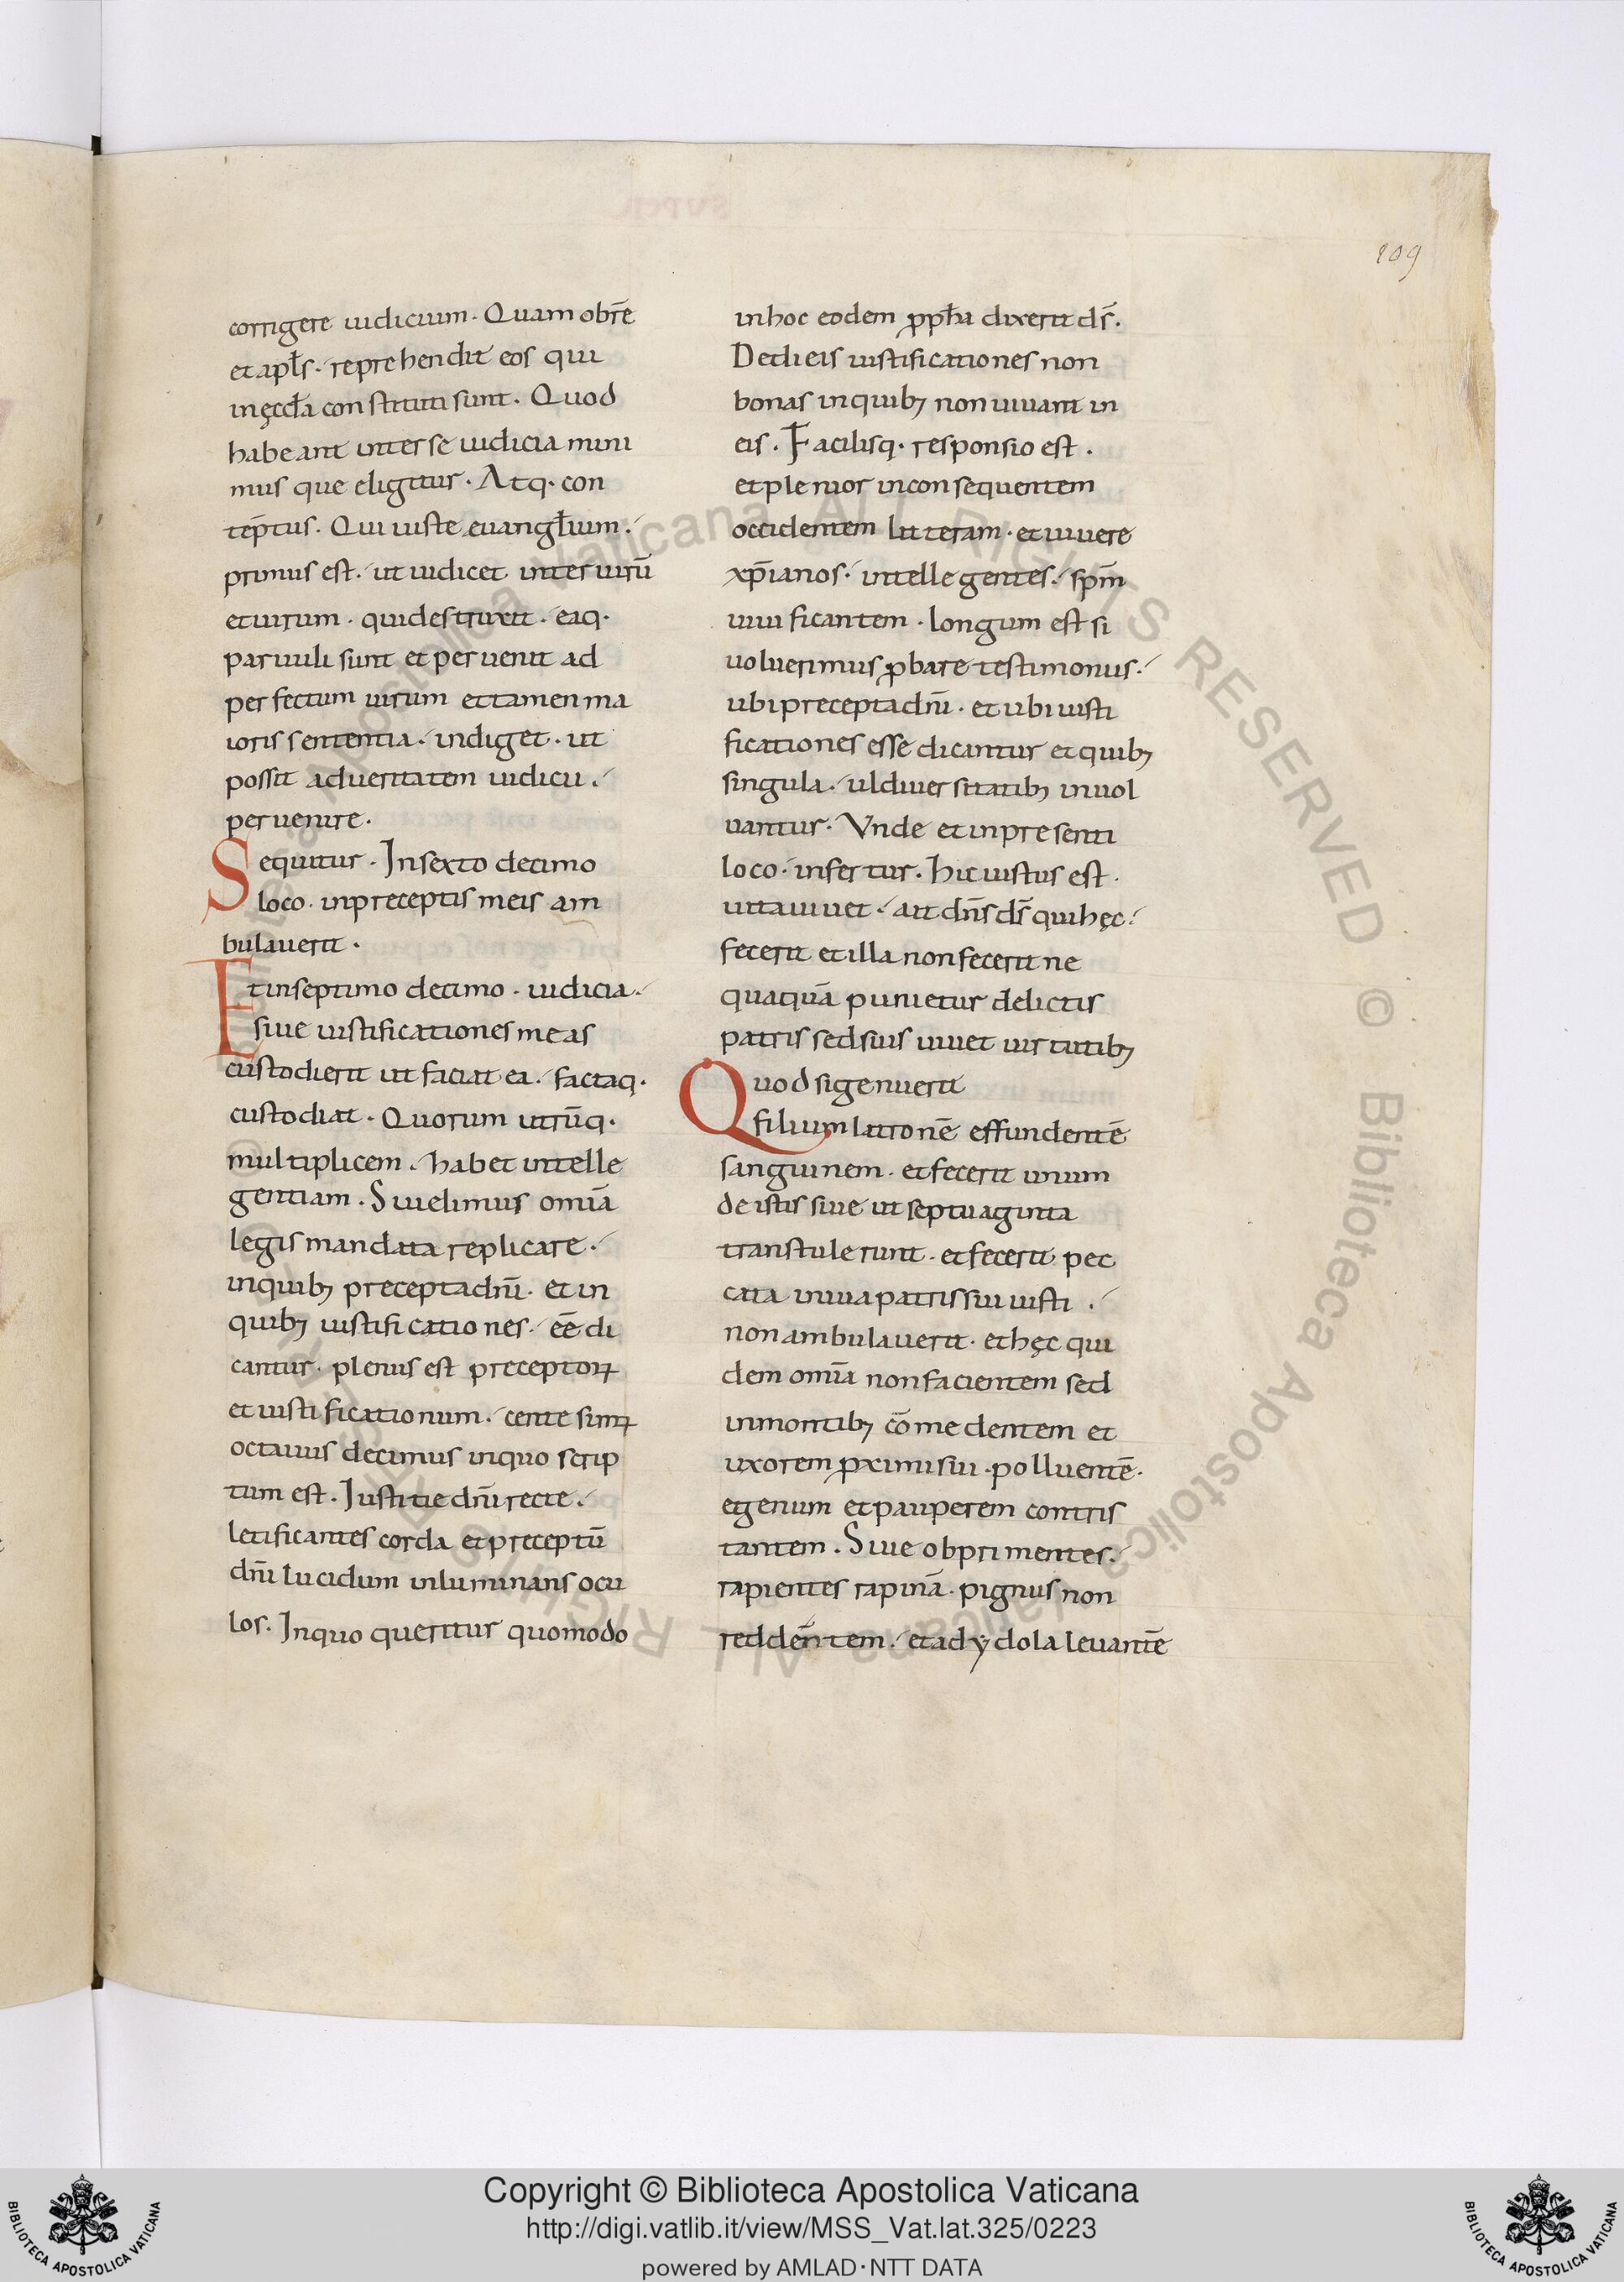 109
corrigere iudicium. Quam obrē
et apl̄s. reprehendit eos qui
in ęccl̄a constituti sunt. Quod
habeant inter se iudicia mini
mus que eligitur. Atq. con
tēptus. Qui iuste euangl̄ium.
primus est. ut iudicet inter uirū
et uirum. qui destruxit. eaq.
paruuli sunt et peruenit ad
perfectum uirum et tamen ma
ioris sententia. indiget. ut
possit ad ueritatem iudicii.
peruenire.
Sequitur. In sexto decimo
loco. in preceptis meis am
bulauerit.
Et in septimo decimo. iudicia.
siue iustificationes meas
custodierit ut faciat ea. factaq.
custodiat. Quorum utrūq.
multiplicem. habet intelle
gentiam. Si uelimus omīa
legis mandata replicare.
in quibꝫ precepta dn̄i. et in
quibꝫ iustificationes. eē di
cantur. plenus est preceptoꝝ
et iustificationum. centesimꝰ
octauus decimus in quo scrip
tum est. Iustitie dn̄i recte.
letificantes corda et preceptū
dn̄i lucidum inluminans ocu
los. In quo queritur quomodo
in hoc eodem ꝓph̄a dixerit ds̄.
Dedi eis iustificationes non
bonas in quibꝫ non uiuant in
eis. Facilisq. responsio est.
et plenior in consequentem
occidentem litteram. et uiuere
xp̄ianos. intellegentes. spm̄
uiuificantem. longum est si
uoluerimus ꝓbare testimoniis.
ubi precepta dn̄i. et ubi iusti
ficationes esse dicantur et quibꝫ
singula. ul diuersitatibꝫ inuol
uantur. Vnde et in presenti
loco. infertur. hic iustus est.
uita uiuet. ait dn̄s ds̄ qui hęc.
fecerit et illa non fecerit ne
quaquā punietur delictis
patris sed suis uiuet uirtutibꝫ
Quod si genuerit
filium latronē effundentē
sanguinem. et fecerit unum
de istis siue ut septuaginta
transtulerunt. et fecerit pec
cata in uia patris sui iusti.
non ambulauerit. et hęc qui
dem omīa non facientem sed
in montibꝫ cōmedentem et
uxorem ꝓximi sui. polluentē.
egenum et pauperem contris
tantem. Siue obprimentes.
rapientes rapinā. pignus non
reddēntem. et ad ydola leuantē
Copyright © Biblioteca Apostolica Vaticana
http://digi.vatlib.it/view/MSS_Vat.lat.325/0223
powered by AMLAD·NTT DATA